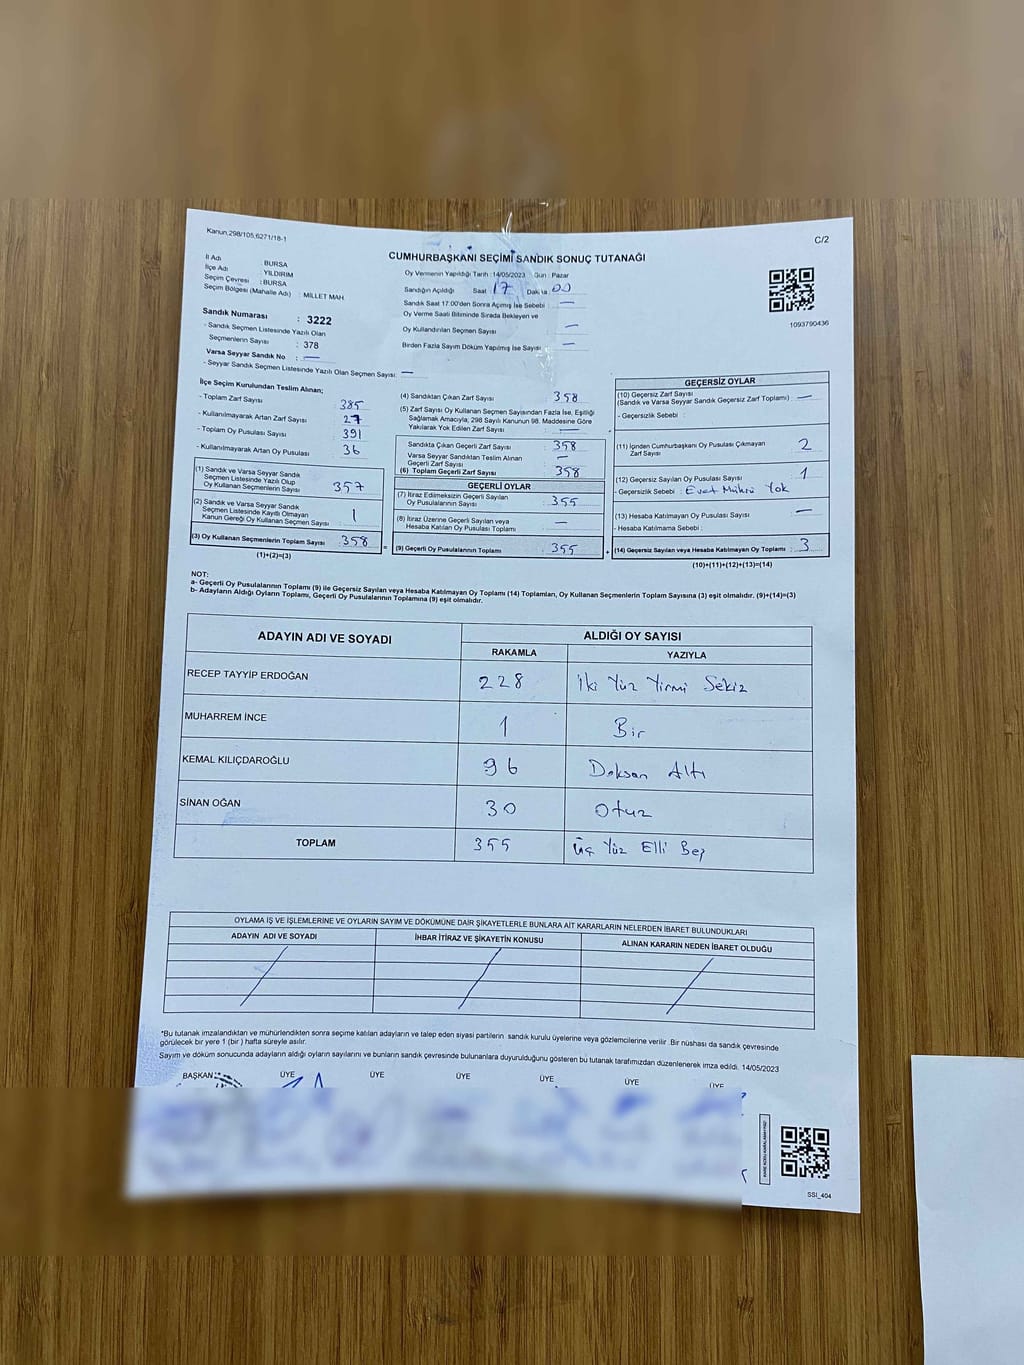 Kanun,298/105,6271/18-1
C/2
CUMHURBAŞKANI SEÇİMİ SANDIK SONUÇ TUTANAĞI
İl Adı : BURSA
İlçe Adı : YILDIRIM
Seçim Çevresi : BURSA
Seçim Bölgesi (Mahalle Adı) : MİLLET MAH
Oy Vermenin Yapıldığı Tarih :14/05/2023 Gün : Pazar
Sandığın Açıldığı Saat 17 Dakika 00
Sandık Saat 17.00'den Sonra Açımış İse Sebebi : —
Oy Verme Saati Bitiminde Sırada Bekleyen ve
Oy Kullandırılan Seçmen Sayısı —
Birden Fazla Sayım Döküm Yapılmış İse Sayısı —
1093790436
Sandık Numarası : 3222
- Sandık Seçmen Listesinde Yazılı Olan
Seçmenlerin Sayısı : 378
Varsa Seyyar Sandık No : —
- Seyyar Sandık Seçmen Listesinde Yazılı Olan Seçmen Sayısı: —
İlçe Seçim Kurulundan Teslim Alınan;
- Toplam Zarf Sayısı 385
- Kullanılmayarak Artan Zarf Sayısı 27
- Toplam Oy Pusulası Sayısı 391
- Kullanılmayarak Artan Oy Pusulası 36
(1) Sandık ve Varsa Seyyar Sandık
Seçmen Listesinde Yazılı Olup
Oy Kullanan Seçmenlerin Sayısı 357
(2) Sandık ve Varsa Seyyar Sandık
Seçmen Listesinde Kayıtlı Olmayan
Kanun Gereği Oy Kullanan Seçmen Sayısı 1
(3) Oy Kullanan Seçmenlerin Toplam Sayısı : 358
(1)+(2)=(3)
(4) Sandıktan Çıkan Zarf Sayısı 358
(5) Zarf Sayısı Oy Kullanan Seçmen Sayısından Fazla İse, Eşitliği
Sağlamak Amacıyla, 298 Sayılı Kanunun 98. Maddesine Göre
Yakılarak Yok Edilen Zarf Sayısı —
Sandıkta Çıkan Geçerli Zarf Sayısı 358
Varsa Seyyar Sandıktan Teslim Alınan
Geçerli Zarf Sayısı —
(6) Toplam Geçerli Zarf Sayısı 358
=
GEÇERLİ OYLAR
(7) İtiraz Edilmeksizin Geçerli Sayılan
Oy Pusulalarının Sayısı 355
(8) İtiraz Üzerine Geçerli Sayılan veya
Hesaba Katılan Oy Pusulası Toplamı —
(9) Geçerli Oy Pusulalarının Toplamı 355
+
GEÇERSİZ OYLAR
(10) Geçersiz Zarf Sayısı
(Sandık ve Varsa Seyyar Sandık Geçersiz Zarf Toplamı) —
- Geçersizlik Sebebi :
(11) İçinden Cumhurbaşkanı Oy Pusulası Çıkmayan
Zarf Sayısı 2
(12) Geçersiz Sayılan Oy Pusulası Sayısı 1
- Geçersizlik Sebebi : Evet Mührü Yok
(13) Hesaba Katılmayan Oy Pusulası Sayısı —
- Hesaba Katılmama Sebebi :
(14) Geçersiz Sayılan veya Hesaba Katılmayan Oy Toplamı : 3
(10)+(11)+(12)+(13)=(14)
NOT:
a- Geçerli Oy Pusulalarının Toplamı (9) ile Geçersiz Sayılan veya Hesaba Katılmayan Oy Toplamı (14) Toplamları, Oy Kullanan Seçmenlerin Toplam Sayısına (3) eşit olmalıdır. (9)+(14)=(3)
b- Adayların Aldığı Oyların Toplamı, Geçerli Oy Pusulalarının Toplamına (9) eşit olmalıdır.
ADAYIN ADI VE SOYADI ALDIĞI OY SAYISI
RAKAMLA YAZIYLA
RECEP TAYYİP ERDOĞAN 228 İki Yüz Yirmi Sekiz
MUHARREM İNCE 1 Bir
KEMAL KILIÇDAROĞLU 96 Doksan Altı
SİNAN OĞAN 30 Otuz
TOPLAM 355 Üç Yüz Elli Beş
OYLAMA İŞ VE İŞLEMLERİNE VE OYLARIN SAYIM VE DÖKÜMÜNE DAİR ŞİKAYETLERLE BUNLARA AİT KARARLARIN NELERDEN İBARET BULUNDUKLARI
ADAYIN ADI VE SOYADI İHBAR İTİRAZ VE ŞİKAYETİN KONUSU ALINAN KARARIN NEDEN İBARET OLDUĞU
*Bu tutanak imzalandıktan ve mühürlendikten sonra seçime katılan adayların ve talep eden siyasi partilerin sandık kurulu üyelerine veya gözlemcilerine verilir .Bir nüshası da sandık çevresinde
görülecek bir yere 1 (bir ) hafta süreyle asılır.
Sayım ve döküm sonucunda adayların aldığı oyların sayılarını ve bunların sandık çevresinde bulunanlara duyurulduğunu gösteren bu tutanak tarafımızdan düzenlenerek imza edildi. 14/05/2023
BAŞKAN ÜYE ÜYE ÜYE ÜYE ÜYE ÜYE
SSI_404